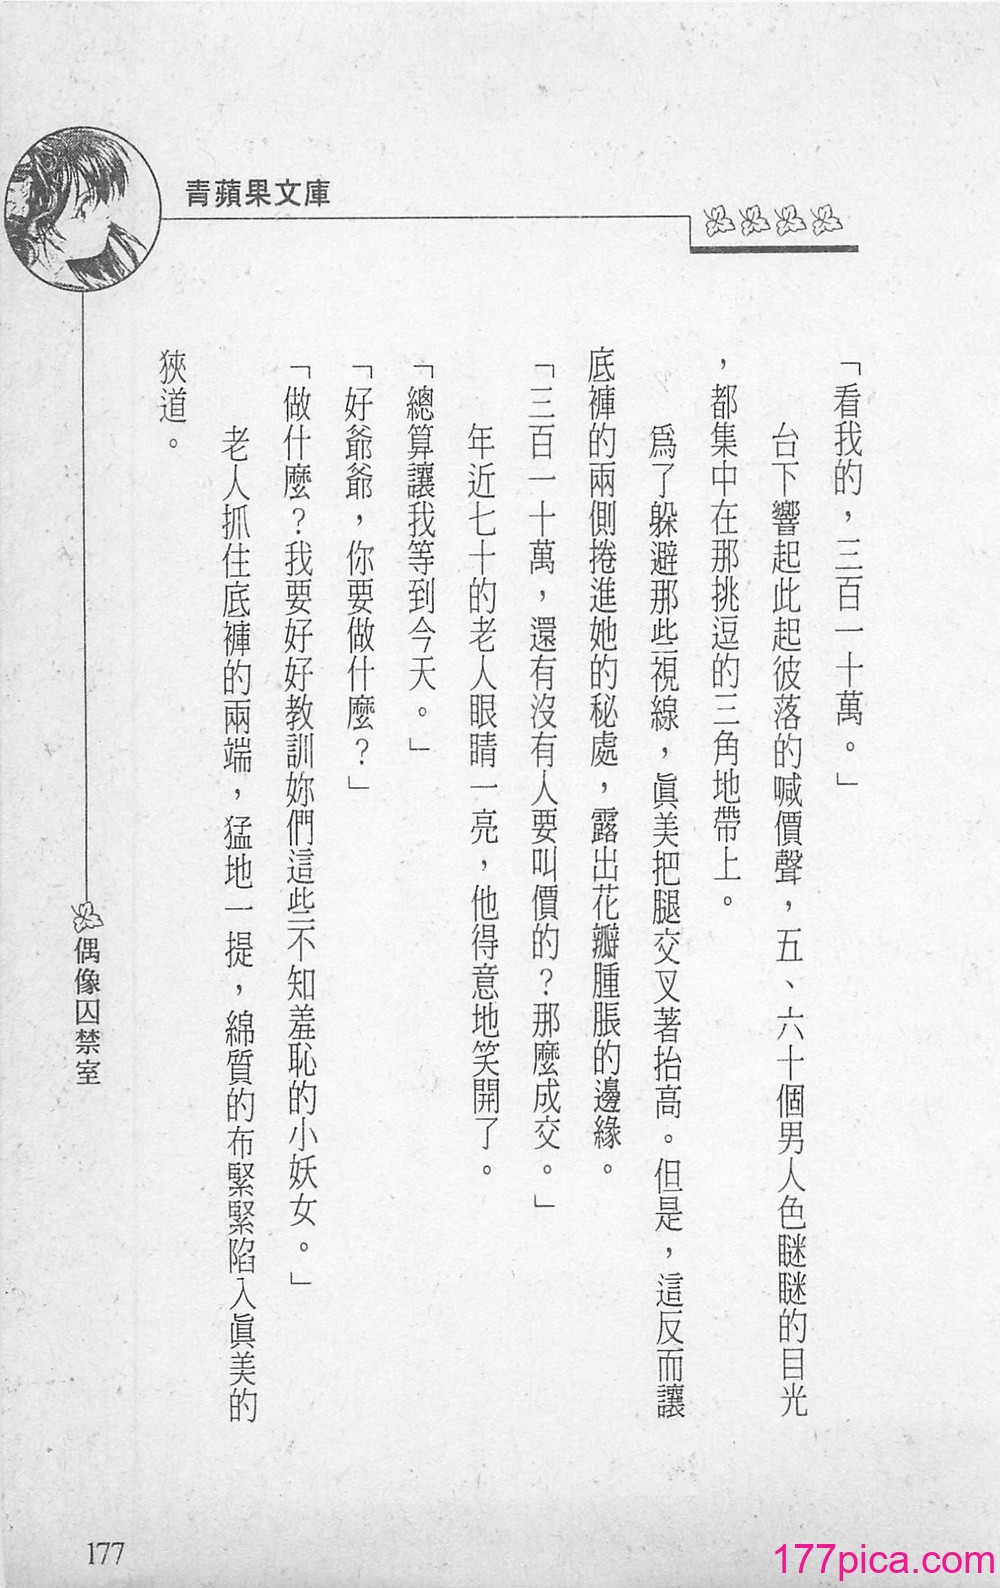 青蘋果文庫
「看我的，三百一十萬。」
台下響起此起彼落的喊價聲，五、六十個男人色瞇瞇的目光
，都集中在那挑逗的三角地帶上。
爲了躲避那些視線，眞美把腿交叉著抬高。但是，這反而讓
底褲的兩側捲進她的秘處，露出花瓣腫脹的邊緣。
「三百一十萬，還有沒有人要叫價的？那麼成交。」
年近七十的老人眼睛一亮，他得意地笑開了。
「總算讓我等到今天。」
「好爺爺，你要做什麼？」
「做什麼？我要好好教訓妳們這些不知羞恥的小妖女。」
老人抓住底褲的兩端，猛地一提，綿質的布緊緊陷入眞美的
狹道。
偶像囚禁室
177
177pica.com